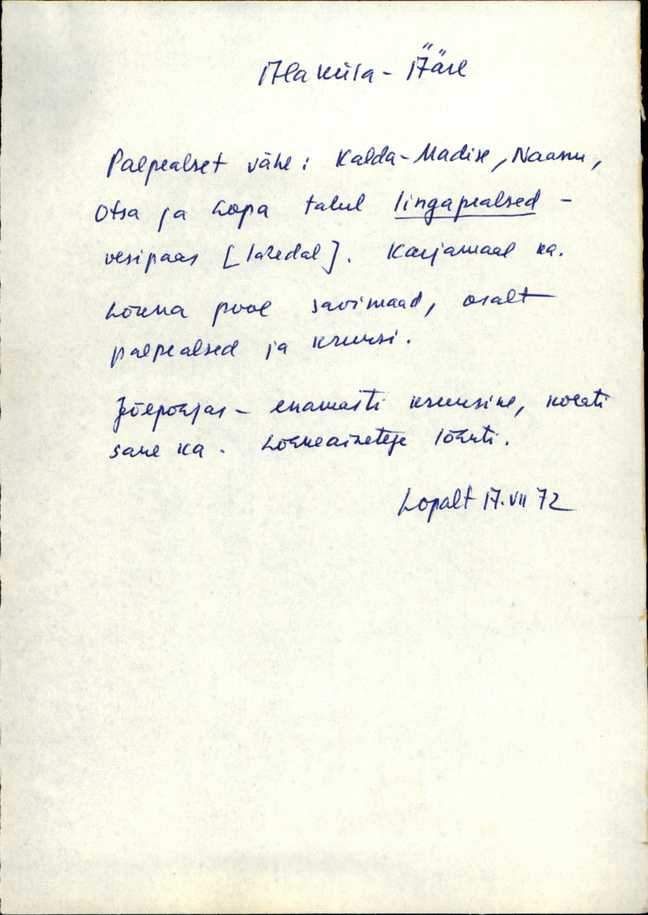 Alaküla - Ääre
Paepealset vähe: Kalda-Madise, Naanu,
Otsa ja Lopa talul lingapealsed -
vesipaas [laredal]. Karjamaal ka.
Lõuna pool savimaad, osalt
paepealsed ja kruusi.
Jõepohjas - enamasti kruusine, kohati
save ka. Lõhti.
Lopalt 17.VII 72